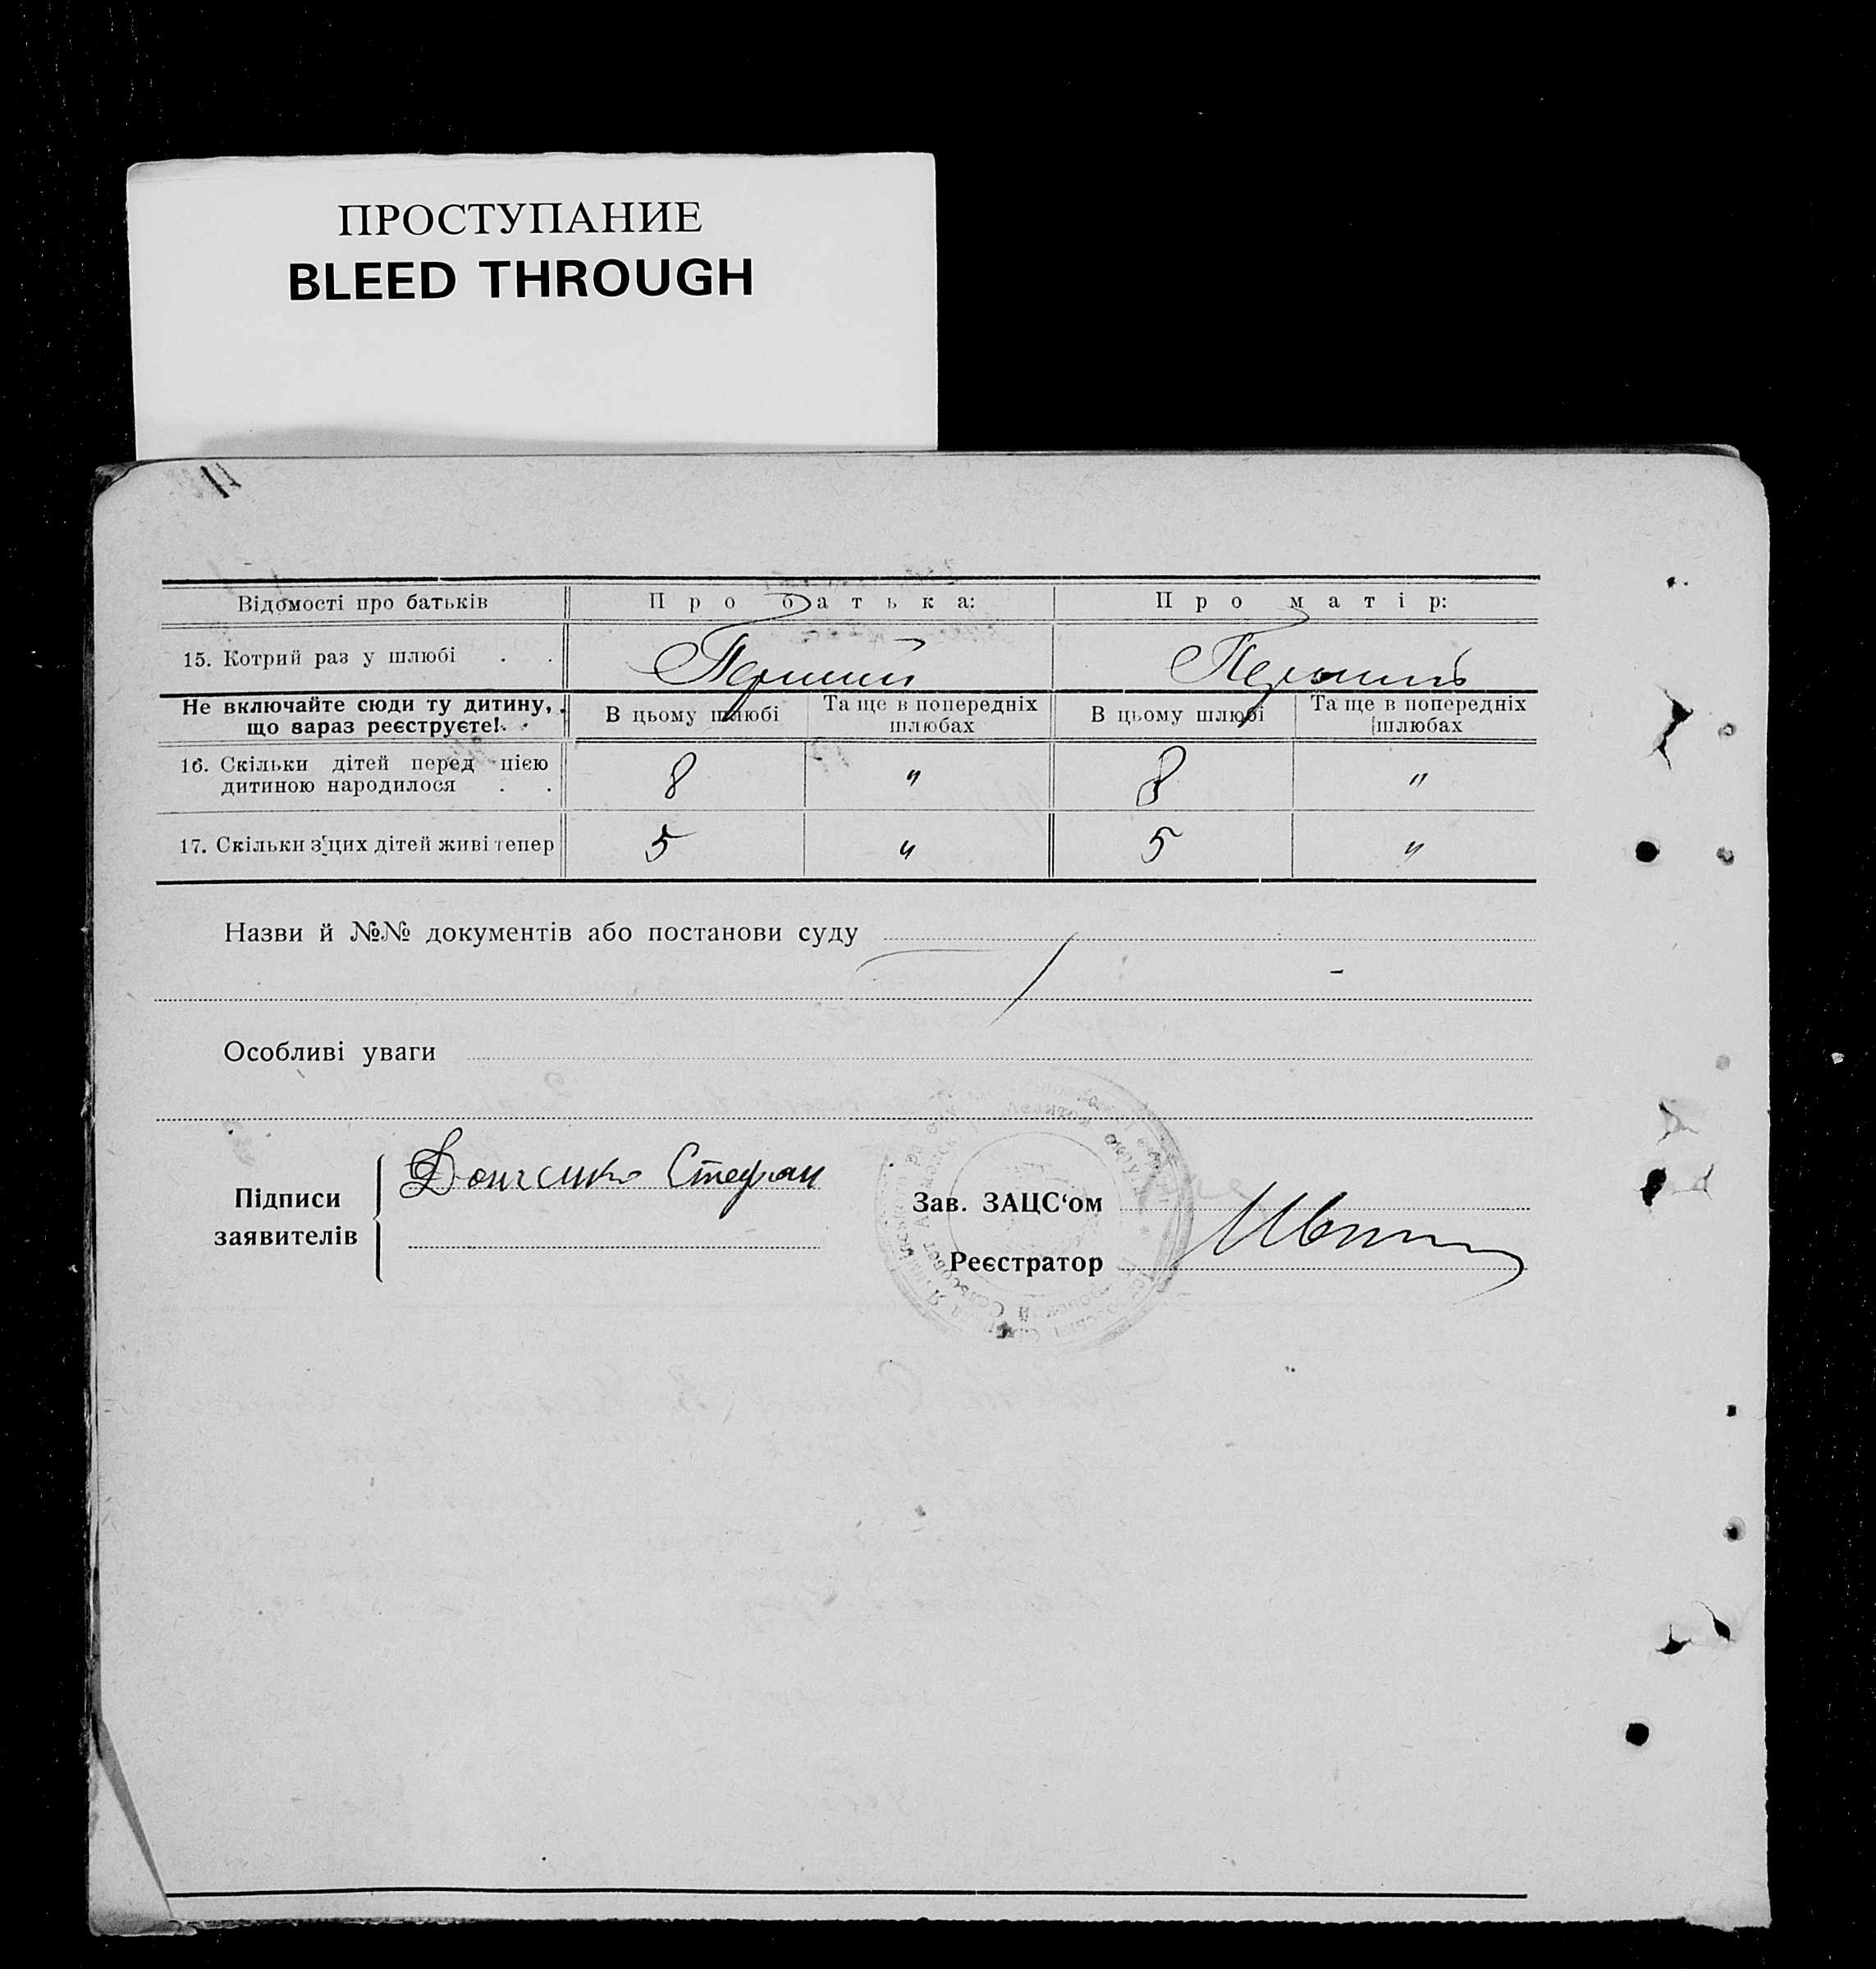 ПРОСТУПАНИЕ
BLEED THROUGH
Відомості про батьків Про батька: Про матір:
15. Котрий раз у шлюбі . . Перший Перший
Не включайте сюди ту дитину, що зараз реєструєте! В цьому шлюбі Та ще в попередніх шлюбах В цьому шлюбі Та ще в попередніх шлюбах
16. Скільки дітей перед цією дитиною народилося . . 8 " 8 "
17. Скільки з цих дітей живі тепер 5 " 5 "
Назви й №№ документів або постанови суду
Особливі уваги
Підписи заявителів Стефан
Зав. ЗАЦС‘ом
Реєстратор